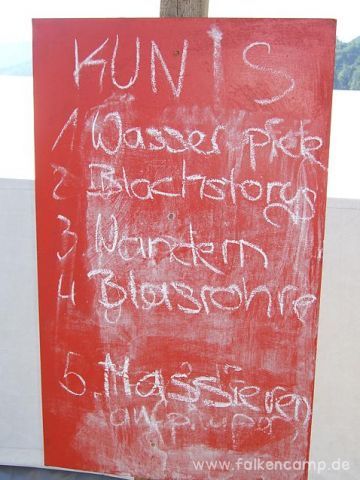 KUNIS
1 Wasser pfeife
2 Blachstorys
3 Wandern
4 Blasrohre
5. Massieren
www.falkencamp.de